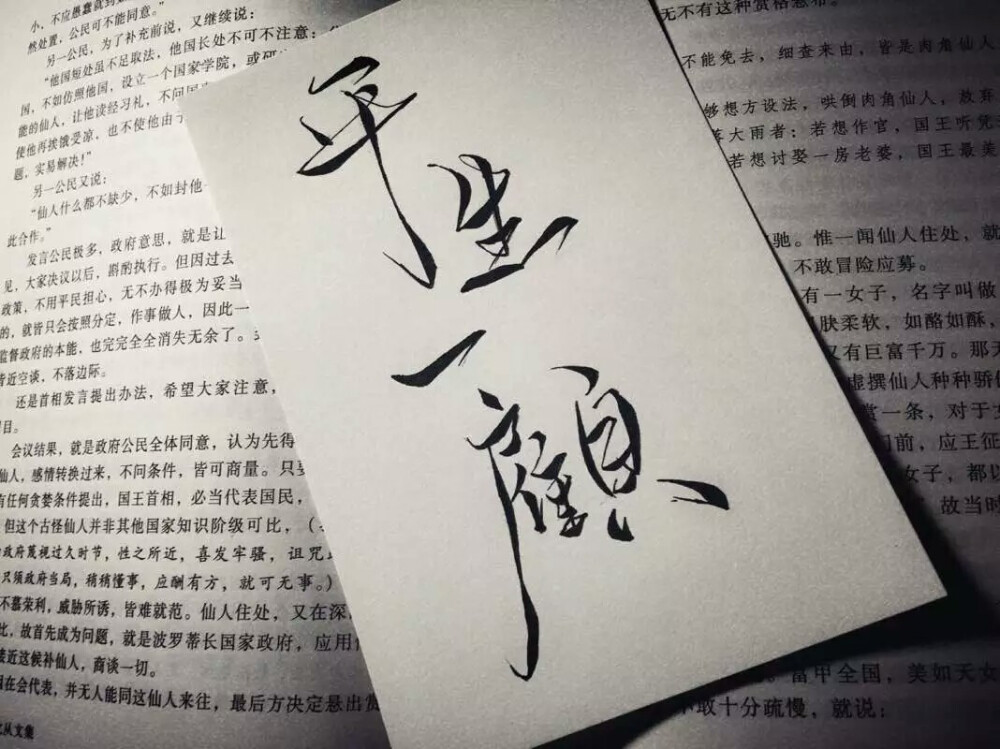 小，不应愚蠢就到
然处置，公民可不能同意。”
另一公民，为了补充前说，又继续说：
“他国短处虽不足取法，他国长处不可不注意：
国，不如仿照他国，设立一个国家学院，或研
能的仙人，让他读经习礼，不问国
使他再挨饿受凉，也不使他由于
题，实易解决！”
另一公民又说：
“仙人什么都不缺少，不如封他一
此合作。”
发言公民极多，政府意思，就是让
见，大家决议以后，斟酌执行。但因过去
政策，不用平民担心，无不办得极为妥当
的，就皆只会按照分定，作事做人，因此一
监督政府的本能，也完完全全消失无余了。
皆近空谈，不落边际。
还是首相发言提出办法，希望大家注意，
题目。
会议结果，就是政府公民全体同意，认为先得
仙人，感情转换过来，不问条件，皆可商量。只要
有任何贪婪条件提出，国王首相，必当代表国民，
但这个古怪仙人并非其他国家知识阶级可比，（
政府蔑视过久时节，性之所近，喜发牢骚，诅咒
只须政府当局，稍稍懂事，应酬有方，就可无事。）
不慕荣利，威胁所诱，皆难就范。仙人住处，又在深
此，故首先成为问题，就是波罗蒂长国家政府，应用
接近这候补仙人，商谈一切。
在会代表，并无人能同这仙人来往，最后方决定悬出赏
从文集
平生
一顾
无不有这种赏格悬布。
不能免去，细查来由，皆是肉角仙人
够想方设法，哄倒肉角仙人，放弃
落大雨者；若想作官，国王听凭
若想讨娶一房老婆，国王最美
驰。惟一闻仙人住处，就
不敢冒险应募。
有一女子，名字叫做
肤柔软，如酪如酥，
又有巨富千万。那天
虚撰仙人种种骄
赏一条，对于
门前，应王征
女子，都以
故当时
富甲全国，美如天女
不敢十分疏慢，就说：